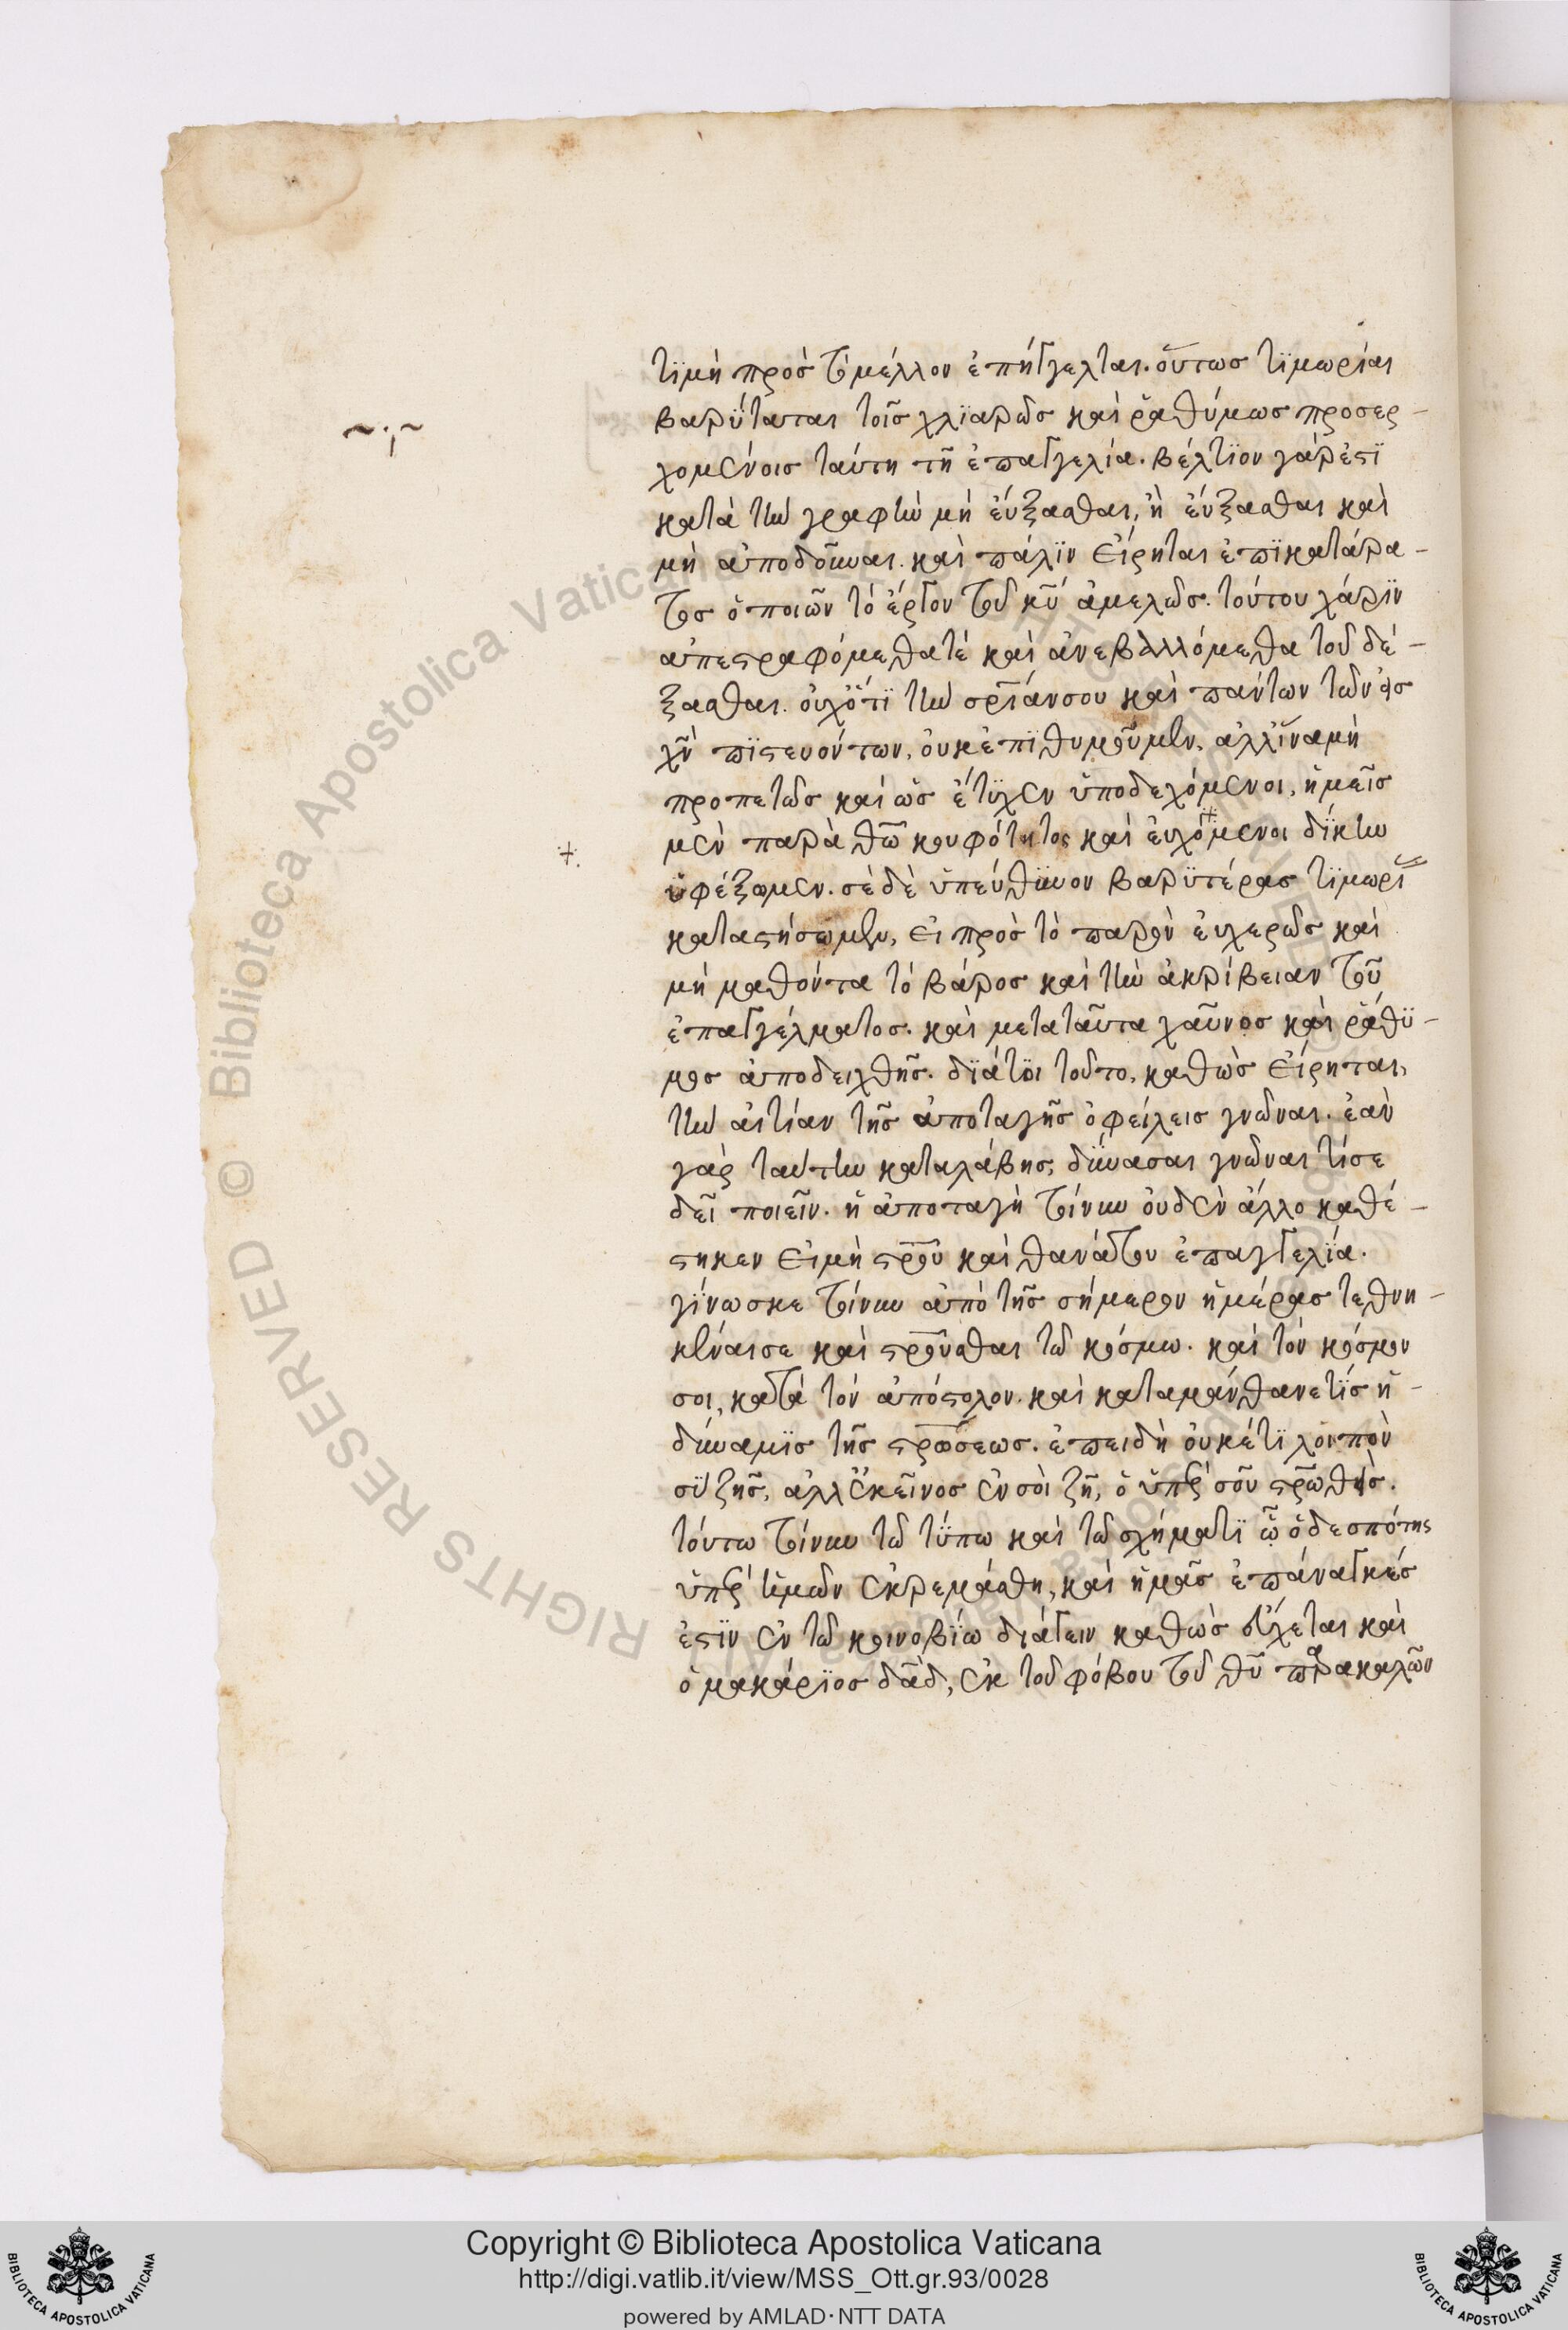 τϊμὴ πρὸς τὸ μέλλον ἐπήγγελται. οὕτως τϊμωρίαι
βαρΰταται τοῖς χλϊαρῶς καὶ ῥαθύμως προσερ-
χομένοις ταύτη τῆ ἐπαγγελία. βέλτϊον γάρ ἐστϊ
κατὰ τὴν γραφὴν μὴ εὔξασθαι, ἢ εὔξασθαι καὶ
μὴ ἀποδοῦναι. καὶ πάλϊν εἴρηται ἐπϊκατάρα-
τος ὁ ποιῶν τὸ ἔργον τοῦ κυ ἀμελῶς. τούτου χάρϊν
ἀπεστραφόμεθα τὲ καὶ ἀνεβαλλόμεθα τοῦ δέ-
ξασθαι. οὐχ ὅτϊ τὴν σρίαν σου καὶ πάντων τῶν εἰς
χν πϊστευόντων, οὐκ ἐπϊθυμοῦμεν, ἀλλ ἵνα μὴ
προπετῶς καὶ ὡς ἔτϋχεν ὑποδεχόμενοι, ἡμεῖς
μὲν παρὰ θω κουφότητος καὶ εὐχόμενοι δΐκην
ὑφέξομεν. σὲ δὲ ὑπεύθϋνον βαρϋτέρας τϊμωρί
καταστήσωμεν, εἰ πρὸς τὸ παρὸν εὐχερῶς καὶ
μὴ μαθόντα τὸ βάρος καὶ τὴν ἀκρίβειαν τοῦ
ἐπαγγέλματος. καὶ μετα ταῦτα χαῦνος καὶ ῥάθϋ-
μος ἀποδειχθῆς. δϊά τοι τοῦτο, καθὼς εἴρηται,
τὴν αἰτίαν τῆς ἀποταγῆς ὀφείλεις γνῶναι. ἐὰν
γὰρ ταύτην καταλάβης, δύνασαι γνῶναι τί σε
δεῖ ποιεῖν. ἡ ἀποταγὴ τοίνυν οὐδὲν ἄλλο καθέ-
στηκεν εἰ μὴ στρου καὶ θανάτου ἐπαγγελϊα.
γΐνωσκε τοίνυν ἀπὸ τῆς σήμερον ἡμέρας τεθνη-
κέναι σε καὶ στροῦσθαι τῶ κόσμω. καὶ τὸν κόσμον
σοι, κατὰ τὸν ἀπόστολον. καὶ καταμάνθανε τίς ἡ
δύναμϊς τῆς στρώσεως. ἐπειδὴ οὐκέτϊ λοιπὸν
σὺ ζῆς, ἀλλ ἐκεῖνος ἐν σοὶ ζῆ, ὁ ὑπὲρ σοῦ στρωθεὶς.
τούτω τοίνυν τῶ τΰπω καὶ τῶ σχήματϊ ὧ ὁ δεσπότης
ὑπὲρ ἡμῶν ἐκρεμάσθη, καὶ ἡμᾶς ἐπάναγκές
ἐστϊν ἐν τῶ κοινοβΐω διάγειν καθὼς εὔχεται καὶ
ὁ μακάρϊος δαδ, ἐκ τοῦ φόβου τοῦ θυ παρακαλῶν
Copyright © Biblioteca Apostolica Vaticana
http://digi.vatlib.it/view/MSS_Ott.gr.93/0028
powered by AMLAD·NTT DATA